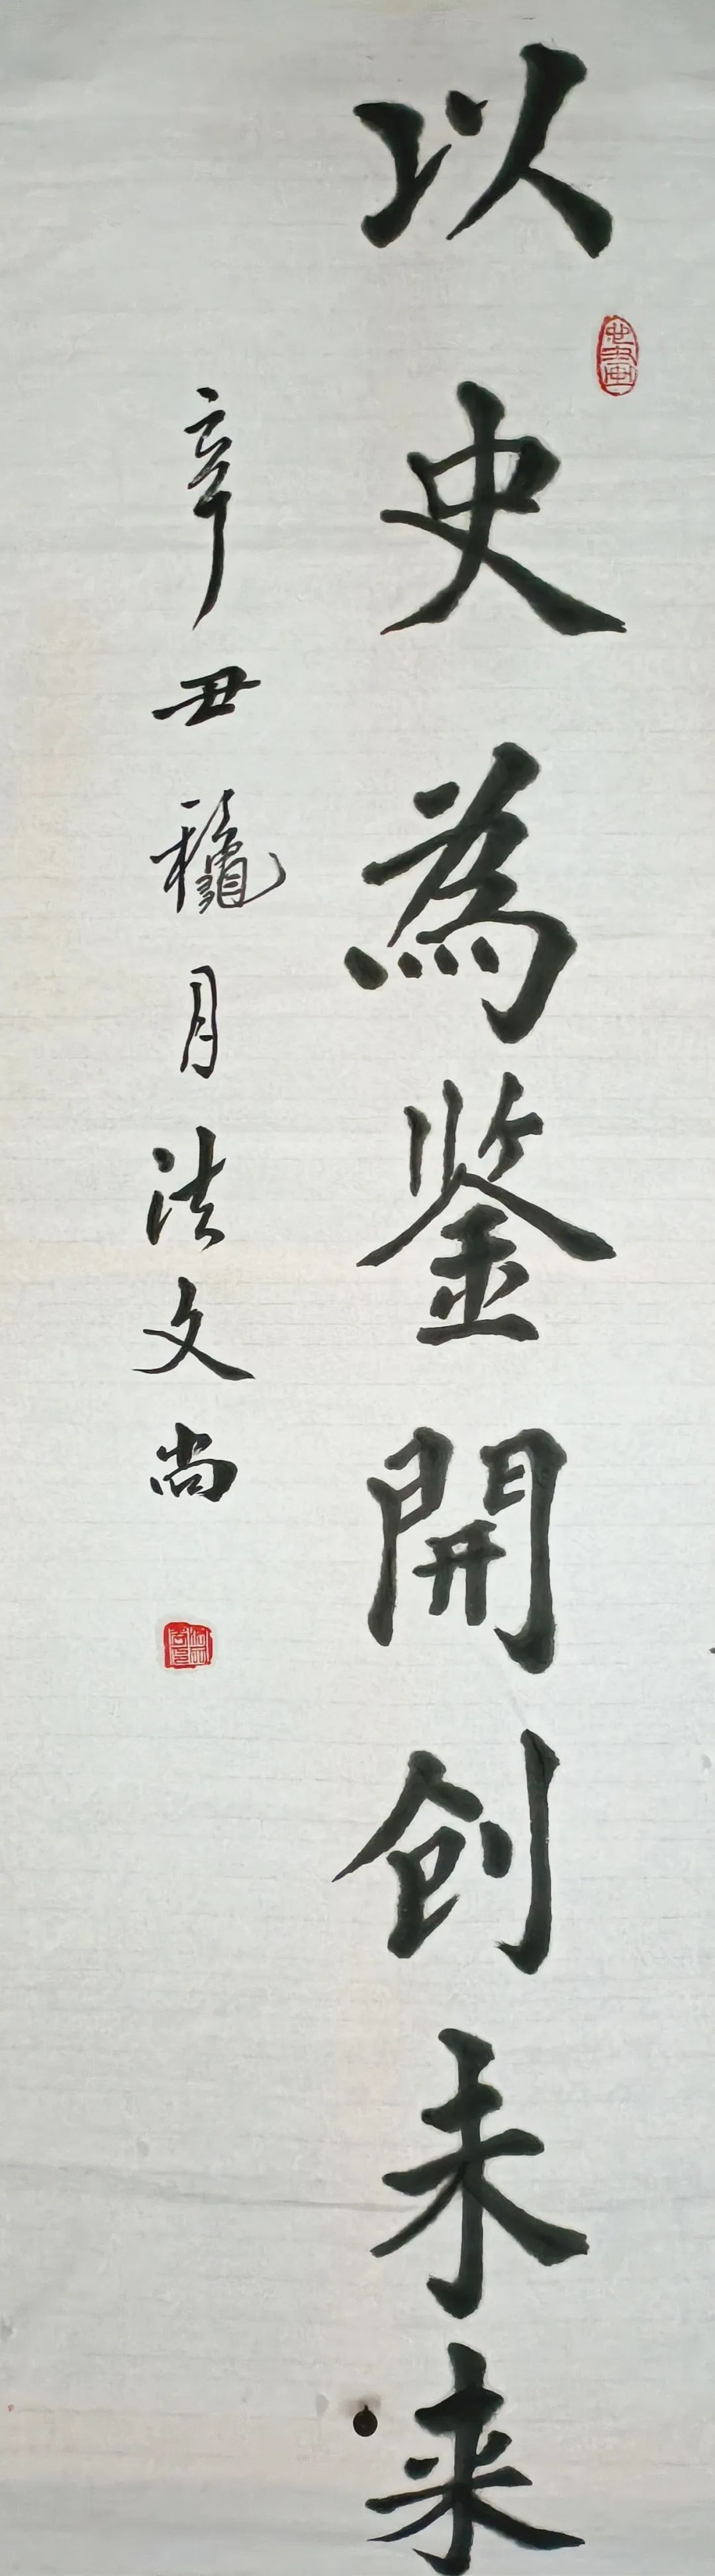 以史為鉴開创未来
辛丑龝月法文尚